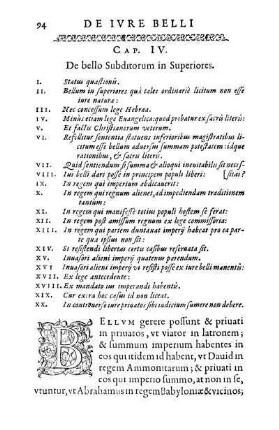 94 DE IVRE BELLI
CAP. IV.
De bello Subditorum in Superiores.
I. Status quæstionis.
II. Bellum in superiores quà tales ordinariè licitum non esse
iure naturæ:
III. Nec concessum lege Hebræa.
IV. Minus etiam lege Euangelica: quod probatur ex sacris literis:
V. Et factis Christianorum veterum.
VI. Refellitur sententia statuens inferioribus magistratibus licitum
esse bellum aduersus summam potestatem: idque
rationibus, & sacris literis.
VII. Quid sentiendum si summa & alioqui ineuitabilis sit necessitas?
VIII. Ius belli dari posse in principem populi liberi:
IX. In regem qui imperium abdicauerit:
X. In regem qui regnum alienet, ad impediendam traditionem
tantum:
XI. In regem qui manifestè totius populi hostem se ferat:
XII. In regem post amissum regnum ex lege commissoria:
XIII. In regem qui partem duntaxat imperij habeat pro ea parte
qua ipsius non sit:
XIV. Si resistendi libertas certis casibus reseruata sit.
XV. Inuasori alieni imperij quatenus parendum.
XVI Inuasori alieni imperij vi resisti posse ex iure belli manentis:
XVII. Ex lege antecedente:
XVIII. Ex mandato ius imperandi habentis.
XIX. Cur extra hos casus id non liceat.
XX. In controuerso iure priuatis sibi iudicium sumere non debere.
BELLVM gerere possunt & priuati
in priuatos, vt viator in latronem;
& summum imperium habentes in
eos qui itidem id habent, vt Dauid in
regem Ammonitarum; & priuati in
eos qui imperio summo, at non in se,
vtuntur, vt Abrahamus in regem Babylonios & vicinos;